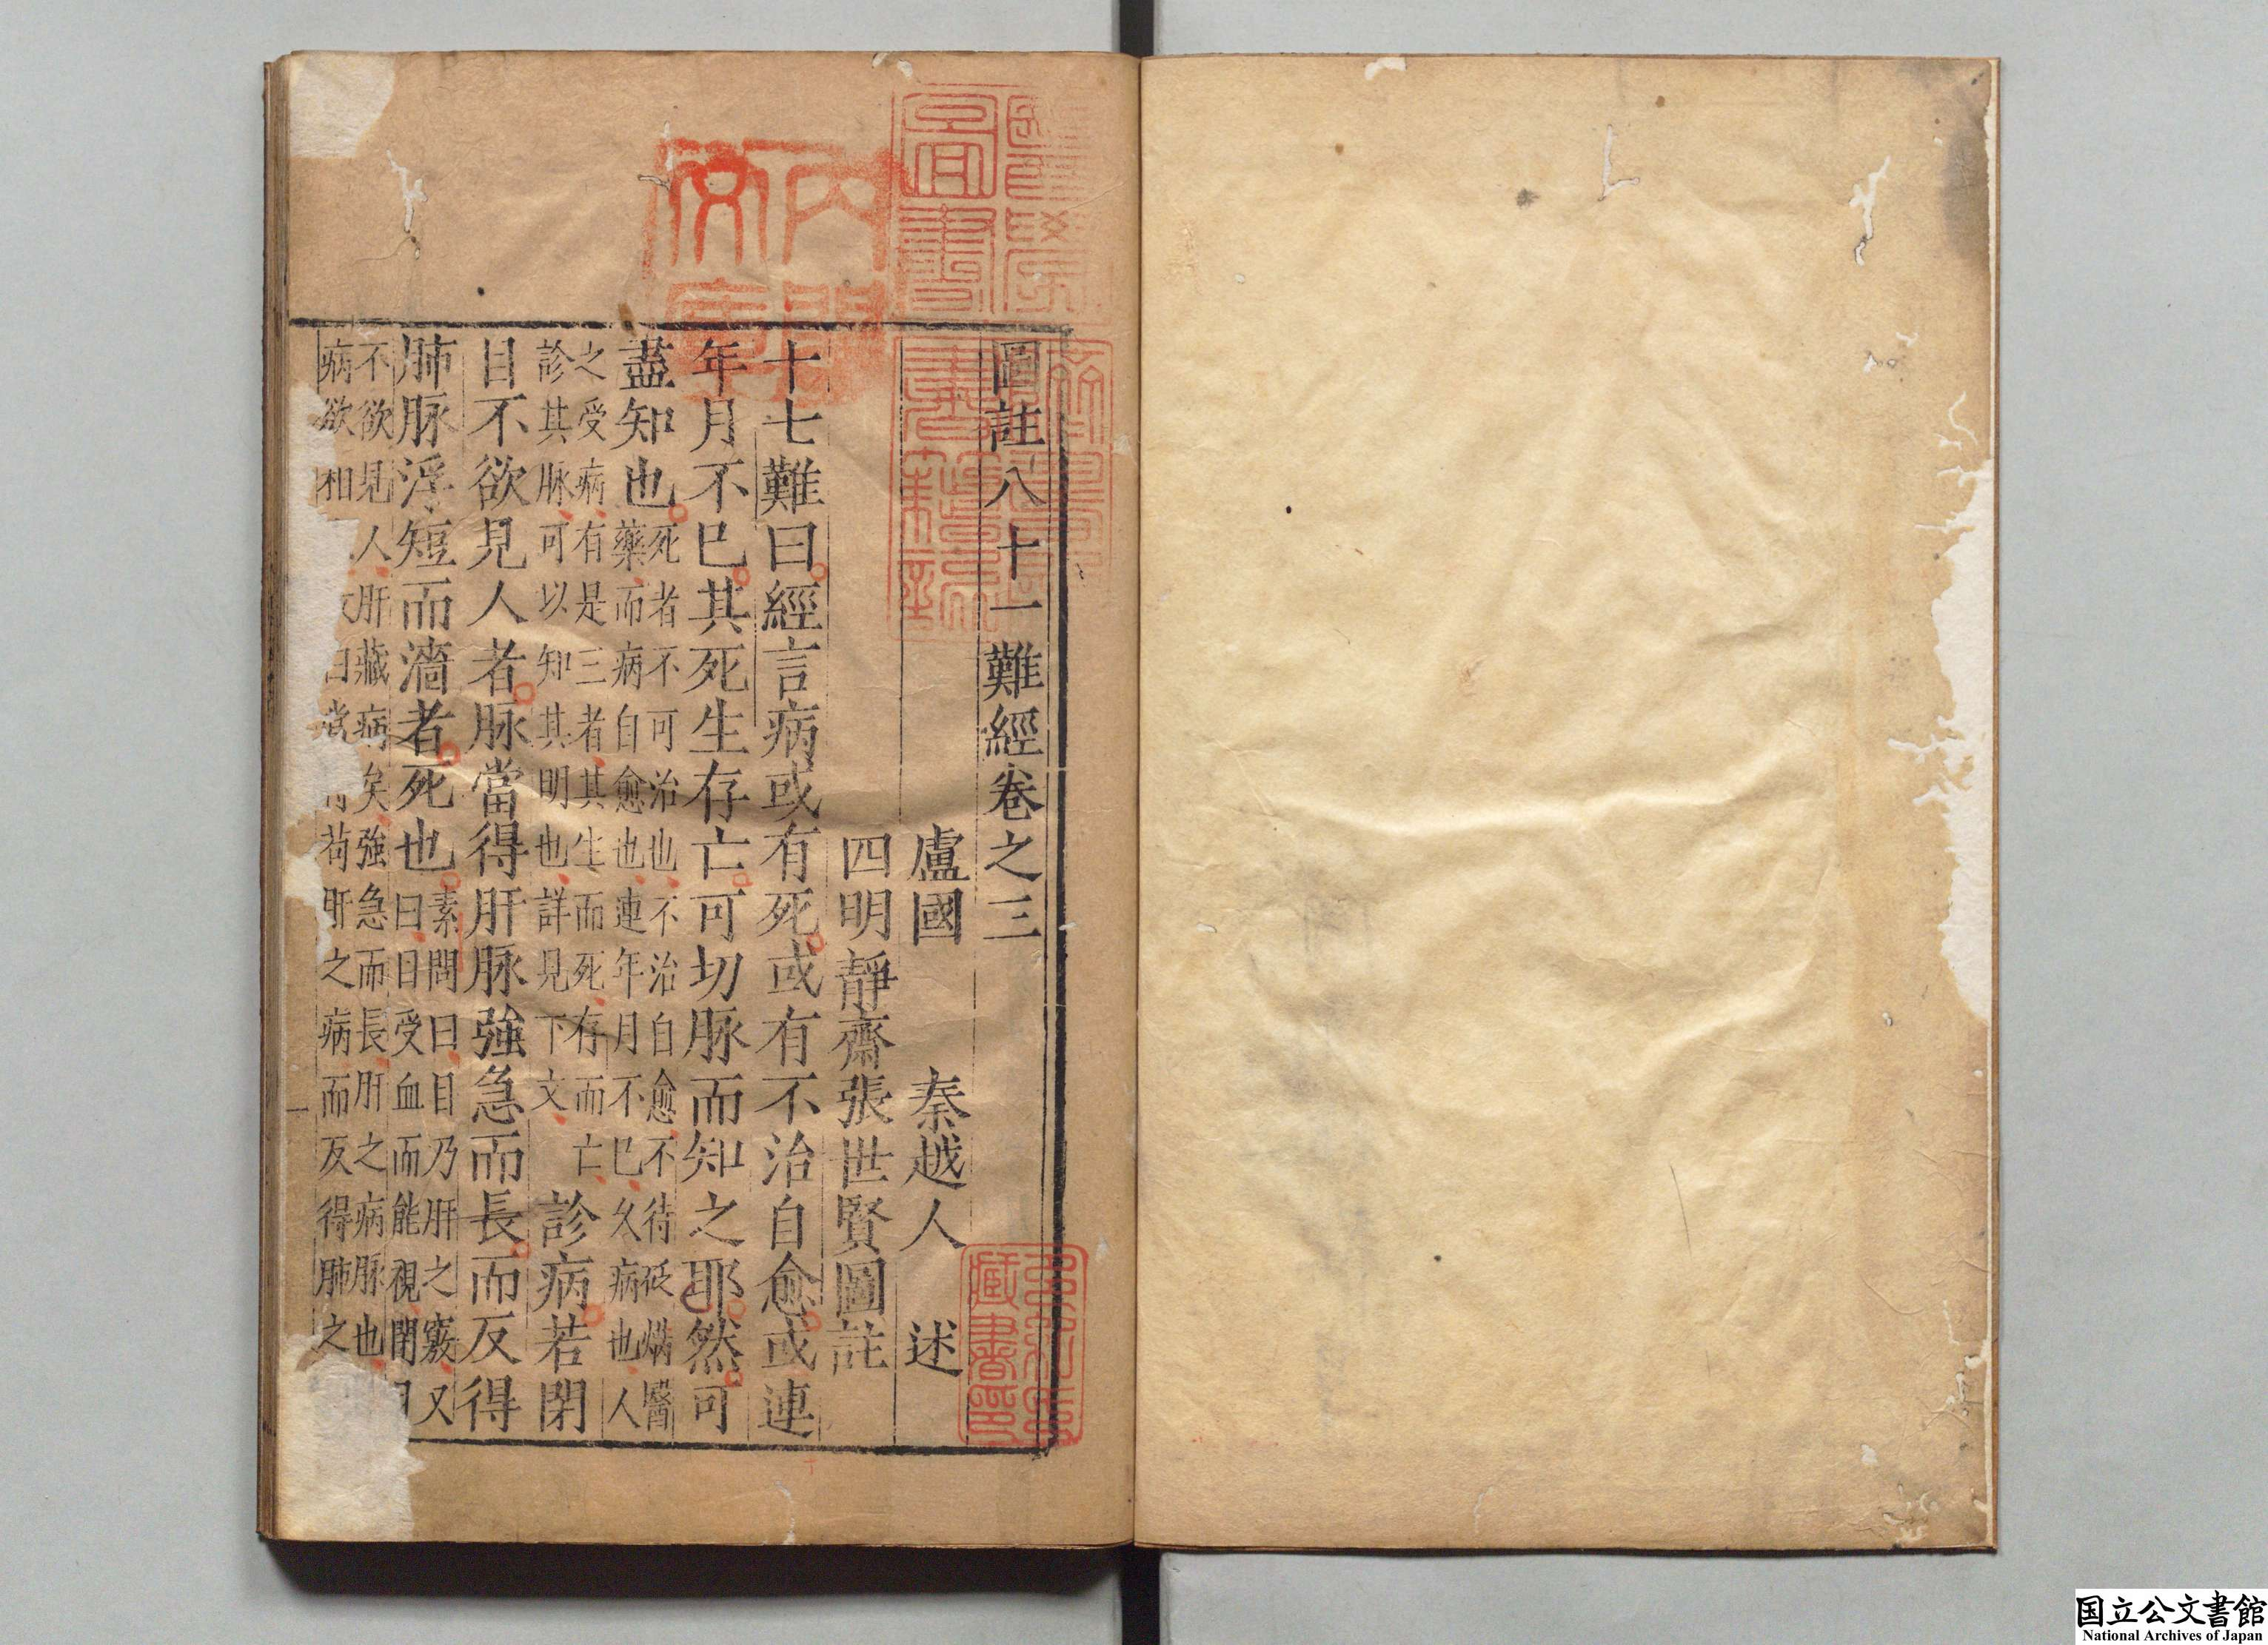 圖註八十一難經卷之三
盧國 秦越人 述
四明靜齋張世賢圖註
十七難曰經言病或有死或有不治自愈或連
年月不巳其死生存亡可切脉而知之耶然可
盡知也
死者不可治也不治自愈不待砭焫醫
藥而病自愈也連年月不巳久病也人
之受病有是三者其生而死存而亡
診其脉可以知其明也詳見下文
診病若閉
目不欲見人者脉當得肝脉強急而長而反得
肺脉浮短而濇者死也
素問曰目乃肝之竅又
曰目受血而能視閉目
不欲見人肝藏病矣強急而長肝之病脉也
病欲相 肝之病而反得肺之
国立公文書館
National Archives of Japan